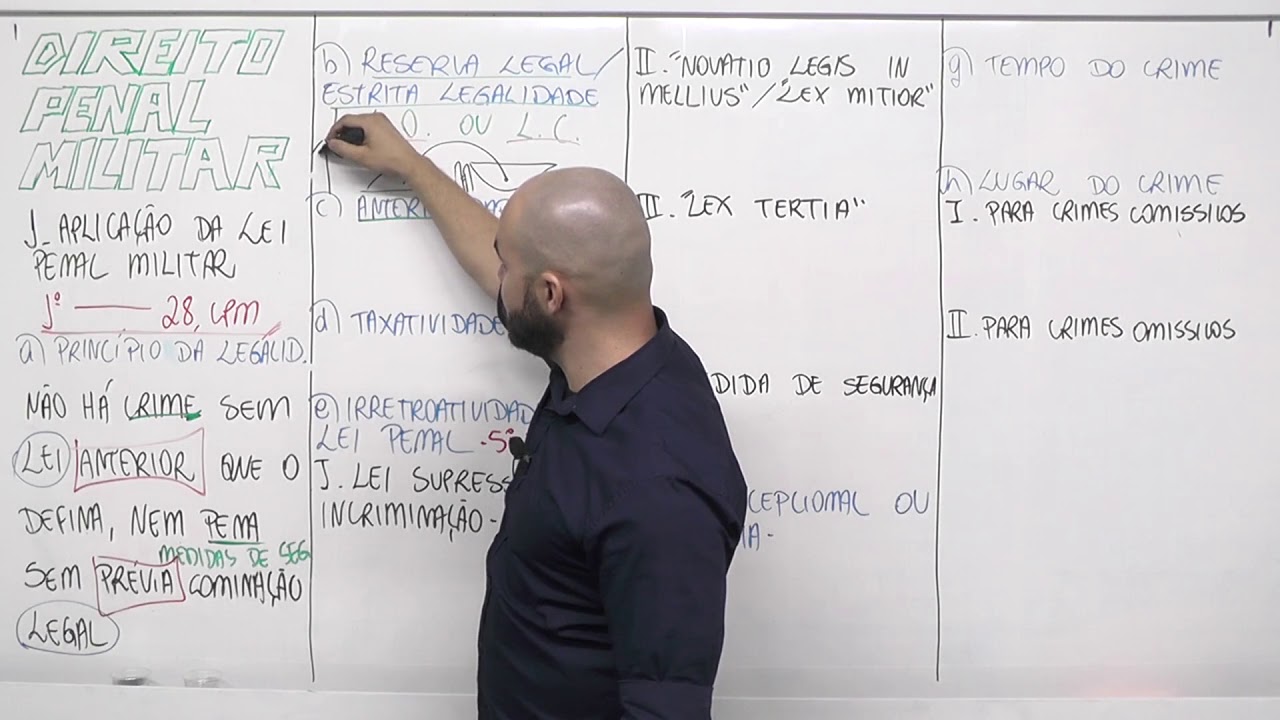 DIREITO
PENAL
MILITAR
1_ APLICAÇÃO DA LEI
PENAL MILITAR
1º — 28, CPM
a) PRINCÍPIO DA LEGALID.
NÃO HÁ CRIME SEM
LEI ANTERIOR QUE O
DEFINA, NEM PENA
MEDIDAS DE SEG
SEM PRÉVIA COMINAÇÃO
LEGAL
b) RESERVA LEGAL/
ESTRITA LEGALIDADE
O. OU L.C.
c)
d) TAXATIVIDADE
e) IRRETROATIVIDAD
LEI PENAL - 5º
I. LEI SUPRESS
INCRIMINAÇÃO -
II. "NOVATIO LEGIS IN
MELLIUS"/"LEX MITIOR"
III. "LEX TERTIA"
DIDA DE SEGURANÇA
CEPCIONAL OU
IA-
g) TEMPO DO CRIME
h) LUGAR DO CRIME
I. PARA CRIMES COMISSIVOS
II. PARA CRIMES OMISSIVOS